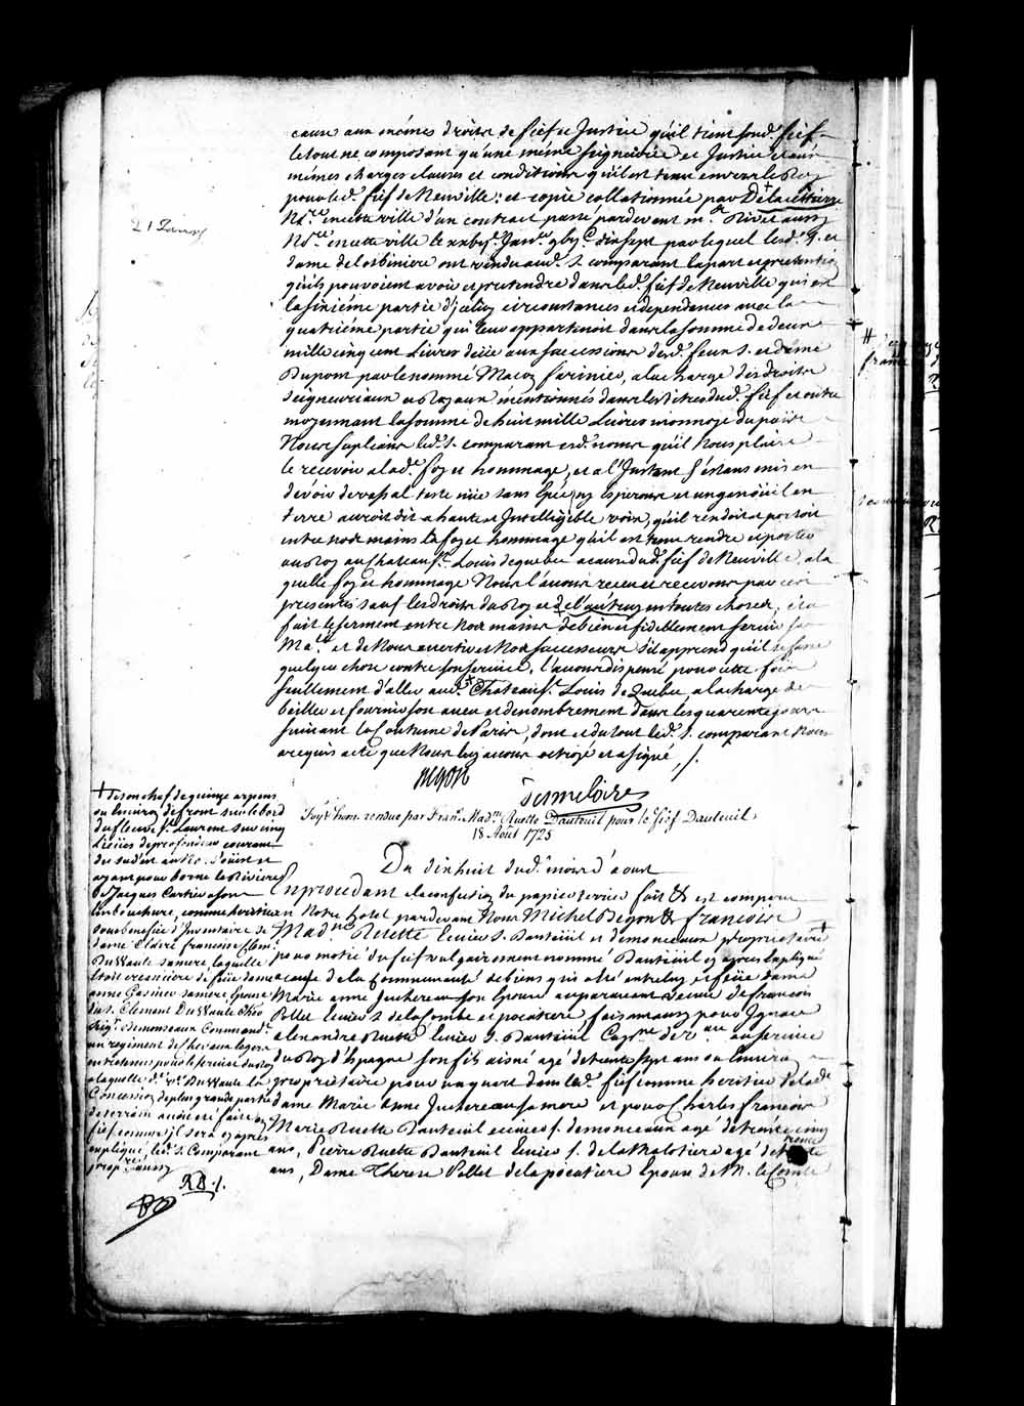 cause aux mêmes droits de fief et Justice qu'il tient sond. fief
le tout ne composant qu'une même seigneurie et Justice et aux
mêmes charges clauses et conditions qu'il est tenu envers le Roy
pour led. fief de Neuville; et copie collationnée par De la cetiere
No.re en cette ville d'un contrat passé pardevant m.e Rivet aussy
No.re en cette ville le Janv.er dix sept par lequel lesd. S. et
dame de Lotbiniere ont vendu aud. S. comparant la part et pretention
qu'ils pouvoient avoir et pretendre dans led. fief de Neuville qui est
la sixiéme partie d'jceluy circonstances et dependances avec la
quatriéme partie qui leur appartenoit dans la somme de deux
mille cinq cent Livres deüe aux successions desd. feux S. et dame
Dupont par le nommé Marinier, a la charge des droits
seigneuriaux et Royaux mentionnés dans les titres dud. fief et outre
moyennant la somme de huit mille Livres monnoye du païs
Nous supliant led. S. comparant esd. noms qu'il Nous plaise
le recevoir a lad.e foy et hommage, et a l'Instant s'étant mis en
devoir de vassal teste nüe sans Epée ny esperons et un genoüil en
terre auroit dit a haute et Intelligible voix, qu'il rendoit et portoit
entre nos mains la foy et hommage qu'il est tenu rendre et porter
au Roy au Chateau S.t Louis de quebec a cause dud. fief de Neuville, a la
quelle foy et hommage Nous l'avons receu et recevons par ces
presentes sauf les droits du Roy et de l'autruy en toutes choses, et a
fait le serment entre Nos mains de bien et fidellement servir sa
Ma.té et de Nous avertir et Nos successeurs s'il apprend qu'il se fasse
quelque chose contre son service, l'avons dispensé pour cette fois
seullement d'aller aud. Chateau S.t Louis de Quebec a la charge de
bailler et fournir son aveu et denombrement dans les quarante jours
suivant la Coutume de Paris, dont et du tout led. S. comparant Nous
a requis acte que Nous luy avons octroyé et a signé ./.
Begon
Desmeloizes
Foy & hom. rendue par Fran.s Mad.ne Ruette Dauteuil pour le fief Dauteuil
18 Août 1725
Du dix huit dud. mois d'aout
En procedant a la confection du papier terrier fait &c est comparu
en Notre hotel pardevant Nous Michel Begon &c francois
Mad.ne Ruette Ecuier S. Dauteüil et demonceaux proprietaire
pour moitié du fief vulgairement nommé Dauteüil cy apres Expliqué
a cause de la Communauté de biens qui a été entre luy et feüe dame
Marie anne Juchereau son Epouse auparavant veuve de francois
Pollet Ecuier S. de la Combe et pocatiere faisant aussy pour Ignace
alexandre Ruette Ecuier S. Dauteüil Cap.ne au service
du Roy d'Espagne son fils aisné agé de trente sept ans ou Environ
proprietaire pour un quart dans led. fief comme heritier de lad.e
dame Marie Anne Juchereau sa mere et pour Charles francois
Marie Ruette Dauteüil Ecuier S. demonceaux agé de trente cinq
ans, Pierre Ruette Dauteuil Ecuier S. de la Malotiere agé de trente
ans, Dame Therese Pollet de la pocatiere Epouse de M. le Comte
21 Janv
+ de son chef de quinze arpens
ou Environ de front sur le bord
du fleuve S.t Laurent sur cinq
Lieües de profondeur courant
ayant pour borne la Riviere
de Jacques Cartier a son
Embouchure, comme heritier
sous benefice d'Inventaire de
dame Claire francoise Clem.t
DuVvault sa mere, laquelle
étoit creanciere de feüe dame
anne Gasnier sa mere Epouse
du S. Clement DuVvault Ch.er
Seig.r demonceaux Command.t
un regiment de chevaux legers
entretenus pour le service du Roy
a laquelle D.e DuVvault la
Concession de plus grande partie
de terrain auroit eté faite en
fief comme il sera cy apres
expliqué, led. S. Comparant
prop.re aussy
RD ./.